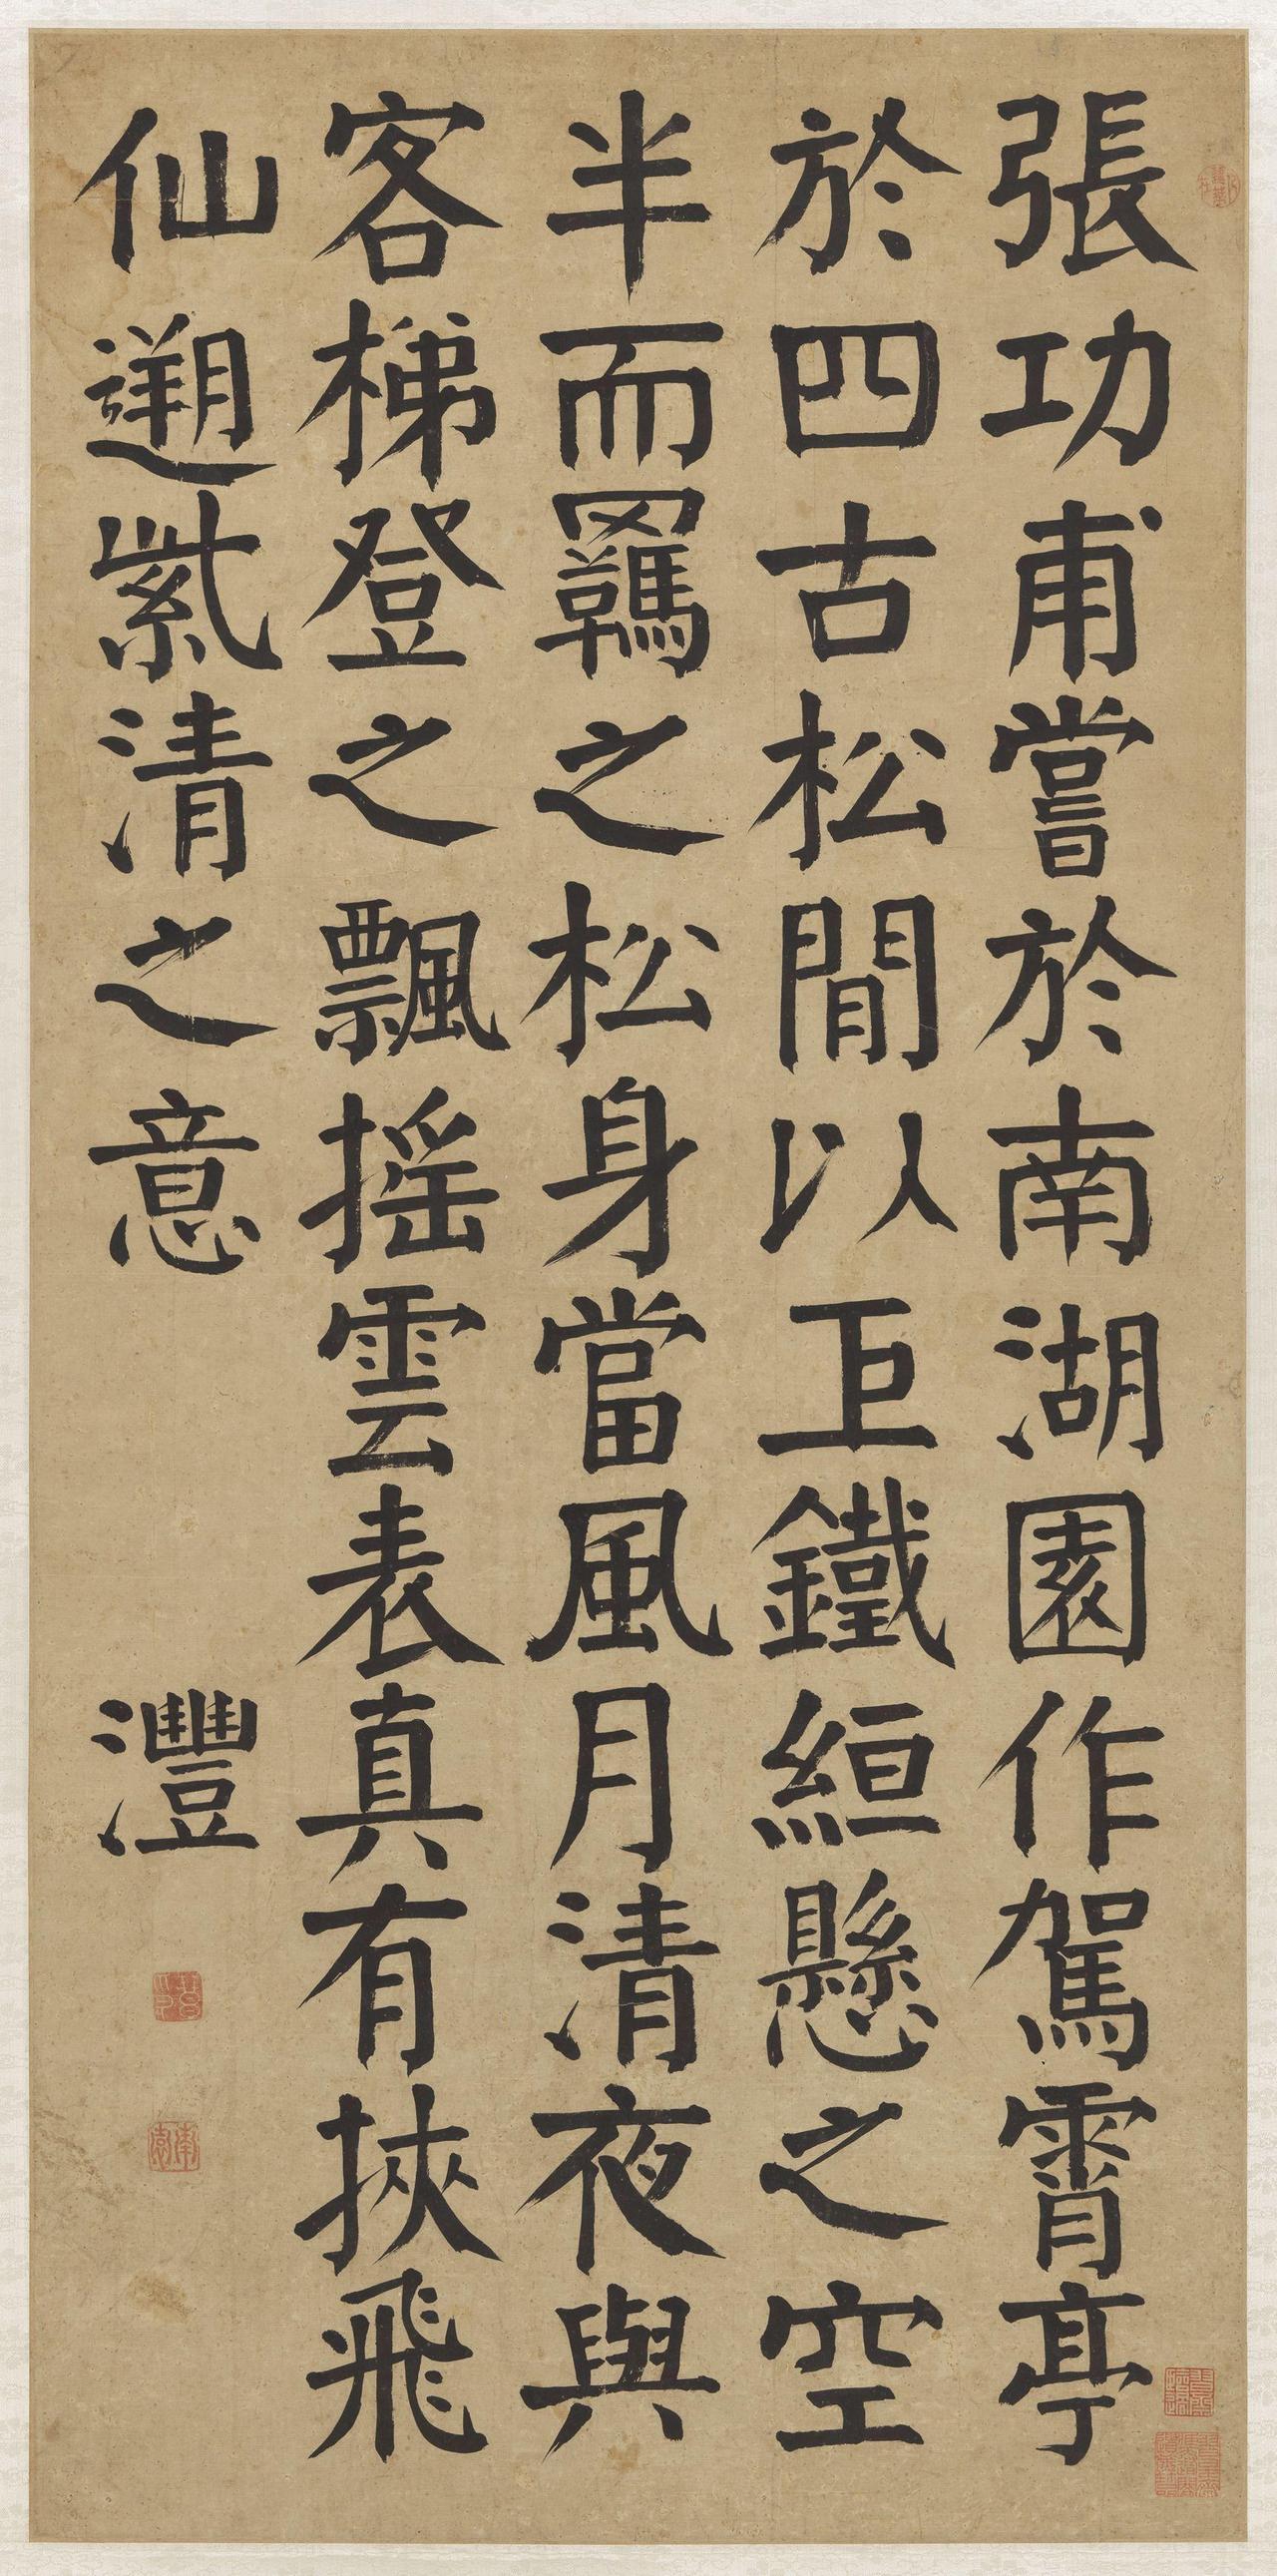 張功甫嘗於南湖園作駕霄亭
於四古松閒以巨鐵絙懸之空
半而羈之松身當風月清夜與
客梯登之飄搖雲表真有挾飛
仙遡紫清之意
灃
南園